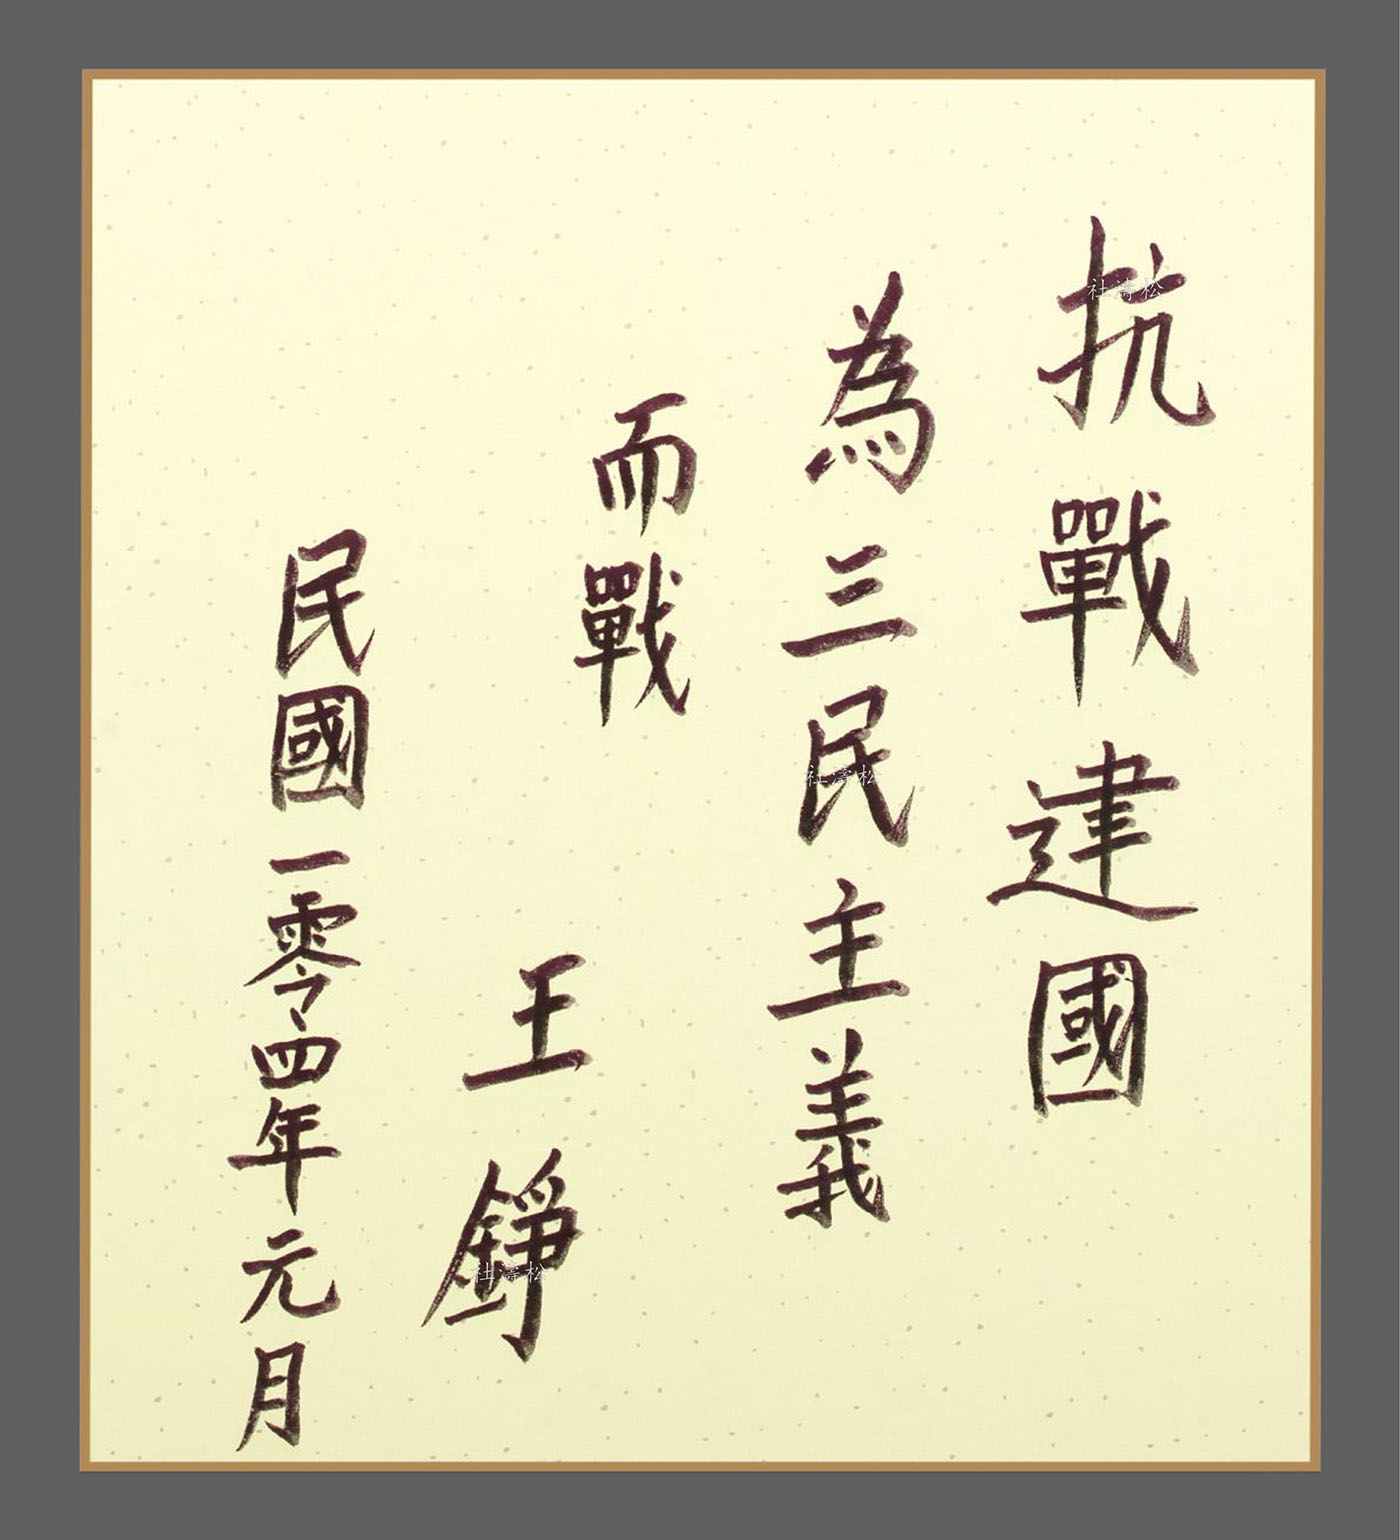 抗戰建國
為三民主義
而戰
王錚
民國一零四年元月
社澪松
社澪松
社澪松